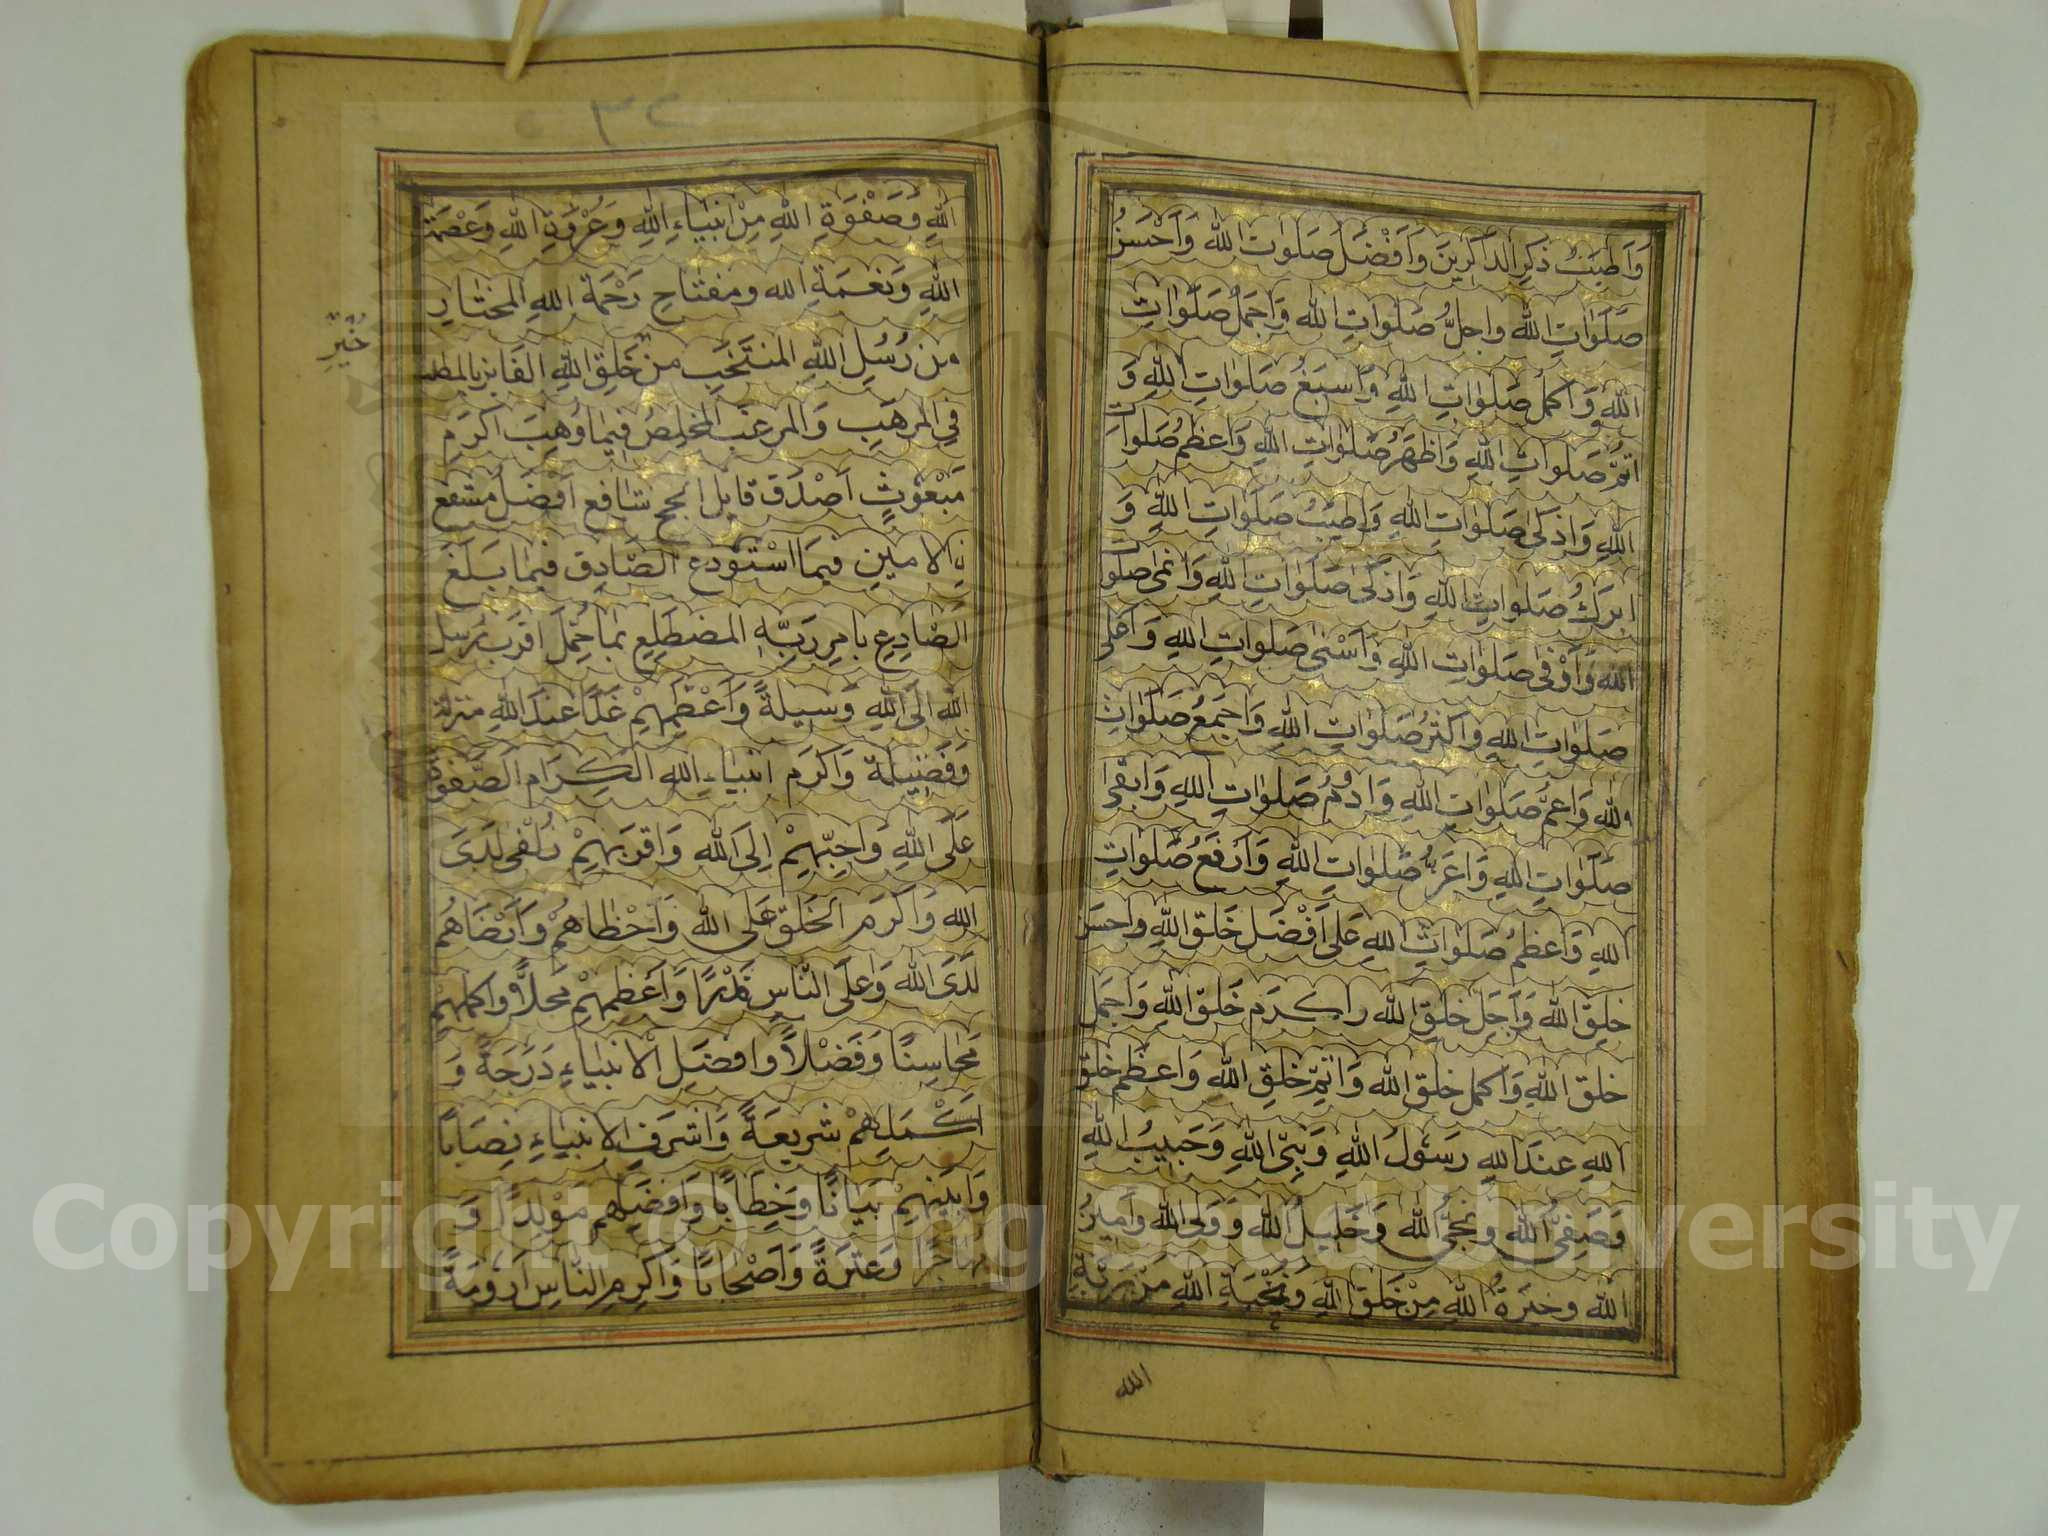 وَاَطيَبُ ذِكرِ الذّاكِرينَ وَاَفْضَلُ صَلَوٰاتِ اللّٰهِ وَاَحْسَنُ
صَلَوٰاتِ اللّٰهِ وَاَجَلُّ صَلَوٰاتِ اللّٰهِ وَاَجمَلُ صَلَوٰاتِ
اللّٰهِ وَاَكمَلُ صَلَوٰاتِ اللّٰهِ وَاَسبَغُ صَلَوٰاتِ اللّٰهِ وَ
اَتَمُّ صَلَوٰاتِ اللّٰهِ وَاَظهَرُ صَلَوٰاتِ اللّٰهِ وَاَعظَمُ صَلَوٰاتِ
اللّٰهِ وَاَذكىٰ صَلَوٰاتِ اللّٰهِ وَاَطيَبُ صَلَوٰاتِ اللّٰهِ وَ
اَبرَكُ صَلَوٰاتِ اللّٰهِ وَاَذكىٰ صَلَوٰاتِ اللّٰهِ وَاَنمىٰ صَلَوٰاتِ
اللّٰهِ وَاَوْفىٰ صَلَوٰاتِ اللّٰهِ وَاَسْنىٰ صَلَوٰاتِ اللّٰهِ وَاَعلىٰ
صَلَوٰاتِ اللّٰهِ وَاَكثَرُ صَلَوٰاتِ اللّٰهِ وَاَجمَعُ صَلَوٰاتِ
اللّٰهِ وَاَعَمُّ صَلَوٰاتِ اللّٰهِ وَاَدوَمُ صَلَوٰاتِ اللّٰهِ وَاَبقىٰ
صَلَوٰاتِ اللّٰهِ وَاَعَزُّ صَلَوٰاتِ اللّٰهِ وَاَرفَعُ صَلَوٰاتِ
اللّٰهِ وَاَعظَمُ صَلَوٰاتِ اللّٰهِ عَلىٰ اَفْضَلِ خَلقِ اللّٰهِ وَاَحسَنِ
خَلقِ اللّٰهِ وَاَجَلِّ خَلقِ اللّٰهِ وَاَكرَمِ خَلقِ اللّٰهِ وَاَجمَلِ
خَلقِ اللّٰهِ وَاَكمَلِ خَلقِ اللّٰهِ وَاَتَمِّ خَلقِ اللّٰهِ وَاَعظَمِ خَلقِ
اللّٰهِ عِندَ اللّٰهِ رَسُولِ اللّٰهِ وَنَبِىِّ اللّٰهِ وَحَبيبِ اللّٰهِ
وَصَفِىِّ اللّٰهِ وَنَجِىِّ اللّٰهِ وَخَليلِ اللّٰهِ وَوَلِىِّ اللّٰهِ وَاَمينِ
اللّٰهِ وَخيرَةِ اللّٰهِ مِنْ خَلقِ اللّٰهِ وَنُخْبَةِ اللّٰهِ مِنْ بَرِيَّةِ
الله
٣٢
اللّٰهِ وَصَفْوَةِ اللّٰهِ مِنْ اَنبِيٰاءِ اللّٰهِ وَعُرْوَةِ اللّٰهِ وَعِصْمَةِ
اللّٰهِ وَنِعمَةِ اللّٰه وَمِفتٰاحِ رَحْمَةِ اللّٰهِ المُختٰارِ
مِن رُسُلِ اللّٰهِ المُنتَخَبِ مِن خَلقِ اللّٰهِ الفَائِزِ بِالمَطلَبِ
فِي المَرهَبِ وَالمَرغَبِ المُخلِصِ فيمٰا وُهِبَ اَكرَمِ
مَبْعُوثٍ اَصْدَقِ قَايِلٍ اَنجَحِ شٰافِعٍ اَفْضَلِ مُشَفَّعٍ
الاَمينِ فيمَا اسْتُودِعَ الصّادِقِ فيمٰا بَلَّغَ
الصّادِعِ بِاَمرِ رَبِّهِ المُضطَلِعِ بِمٰا حُمِّلَ اَقرَبِ رُسُلِ
اللّٰهِ اِلَى اللّٰهِ وَسيلَةً وَاَعْظَمِهِمْ غَدًا عِندَ اللّٰهِ مَنزِلَةً
وَفَضيلَةً وَاَكرَمِ اَنبِيٰاءِ اللّٰهِ الكِرَامِ الصَّفوَةِ
عَلَى اللّٰهِ وَاَحَبِّهِمْ اِلَى اللّٰهِ وَاَقرَبِهِمْ زُلْفىٰ لَدَى
اللّٰهِ وَاَكرَمِ الخَلقِ عَلَى اللّٰهِ وَاَحْظٰاهُمْ وَاَرْضٰاهُم
لَدَى اللّٰهِ وَاَعلَى النّاسِ قَدْرًا وَاَعظَمِهِمْ مَحَلًّا وَاَكمَلِهِمْ
مَحٰاسِنًا وَفَضْلًا وَاَفضَلِ الاَنبِيٰاءِ دَرَجَةً وَ
اَكْمَلِهِمْ شَريعَةً وَاَشرَفِ الاَنبِيٰاءِ نِصٰابًا
وَاَبيَنِهِمْ بَيٰانًا وَخِطٰابًا وَاَفضَلِهِم مَوْلِدًا وَ
مُهاجَرًا وَعِترَةً وَاَصْحٰابًا وَاَكرَمِ النّاسِ اَرُومَةً
Copyright © King Saud University